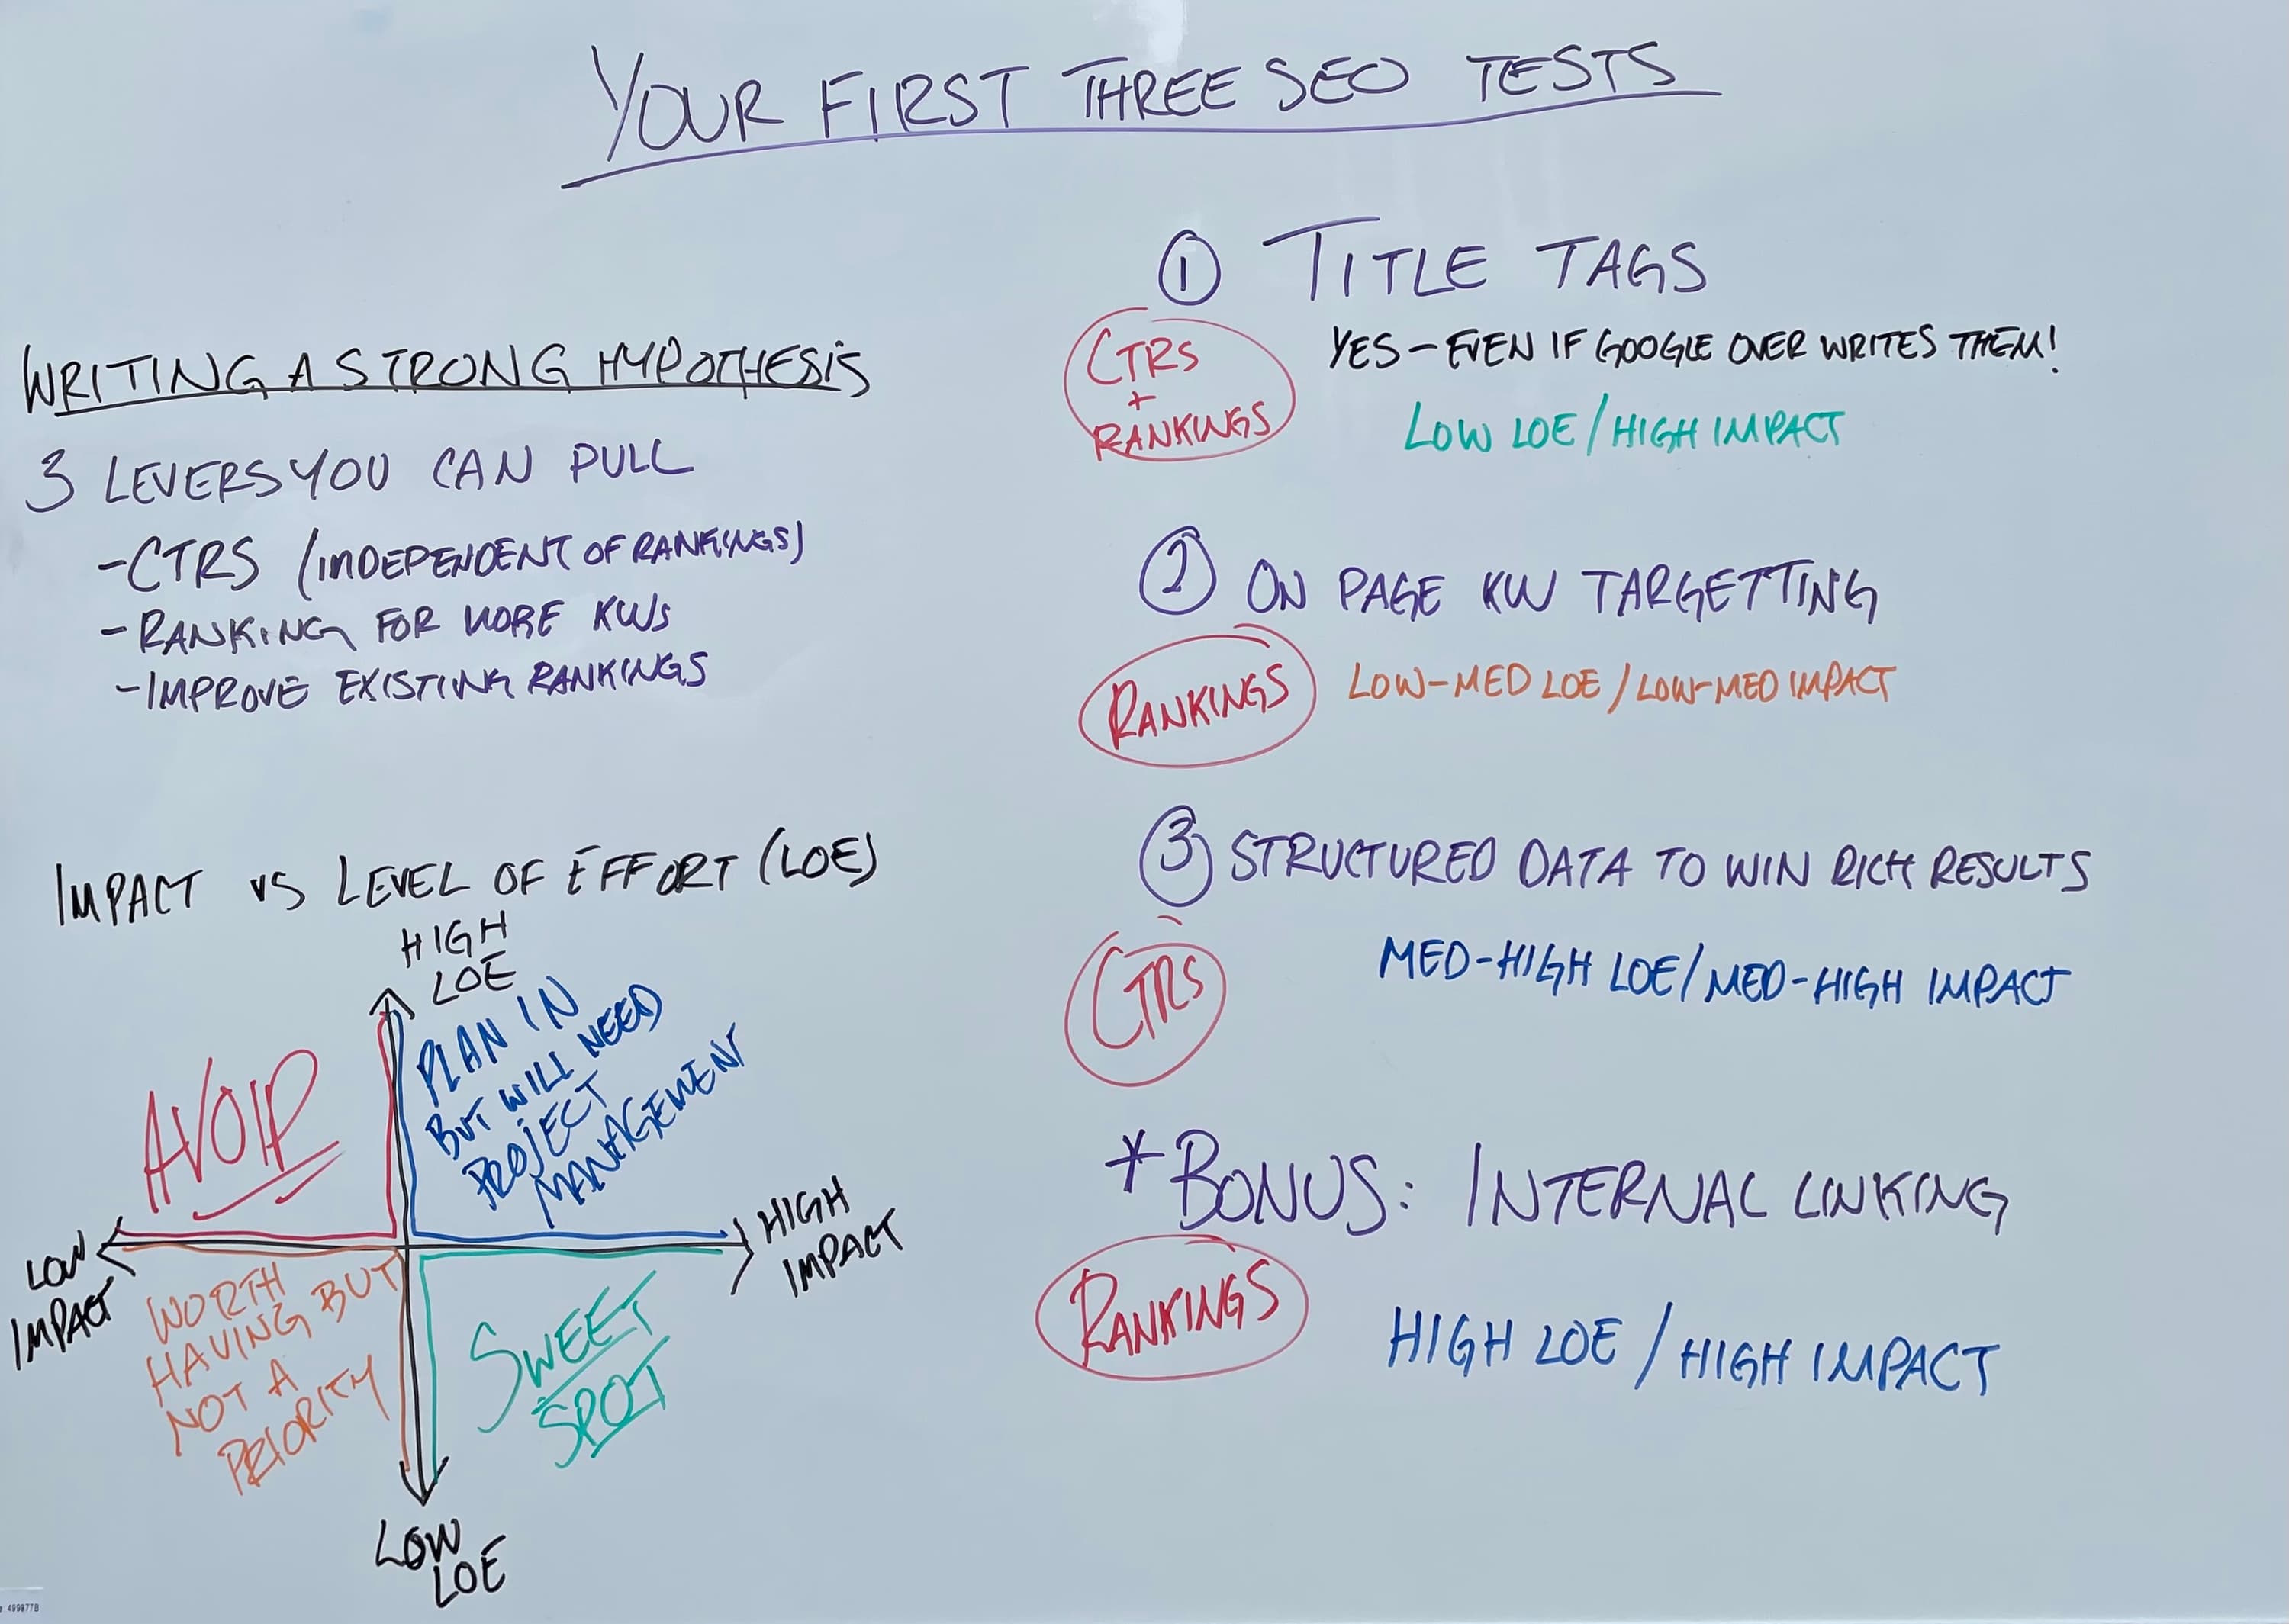 YOUR FIRST THREE SEO TESTS
WRITING A STRONG HYPOTHESIS
3 LEVERS YOU CAN PULL
-CTRS (INDEPENDENT OF RANKINGS)
-RANKING FOR MORE KWS
-IMPROVE EXISTING RANKINGS
IMPACT VS LEVEL OF EFFORT (LOE)
HIGH
LOE
AVOID
PLAN IN
BUT WILL NEED
PROJECT
MANAGEMENT
LOW
IMPACT
HIGH
IMPACT
WORTH
HAVING BUT
NOT A
PRIORITY
SWEET
SPOT
LOW
LOE
1 TITLE TAGS
CTRS
+
RANKINGS
YES - EVEN IF GOOGLE OVER WRITES THEM!
LOW LOE / HIGH IMPACT
2 ON PAGE KW TARGETTING
RANKINGS
LOW-MED LOE / LOW-MED IMPACT
3 STRUCTURED DATA TO WIN RICH RESULTS
CTRS
MED-HIGH LOE / MED-HIGH IMPACT
* BONUS: INTERNAL LINKING
RANKINGS
HIGH LOE / HIGH IMPACT
499877B